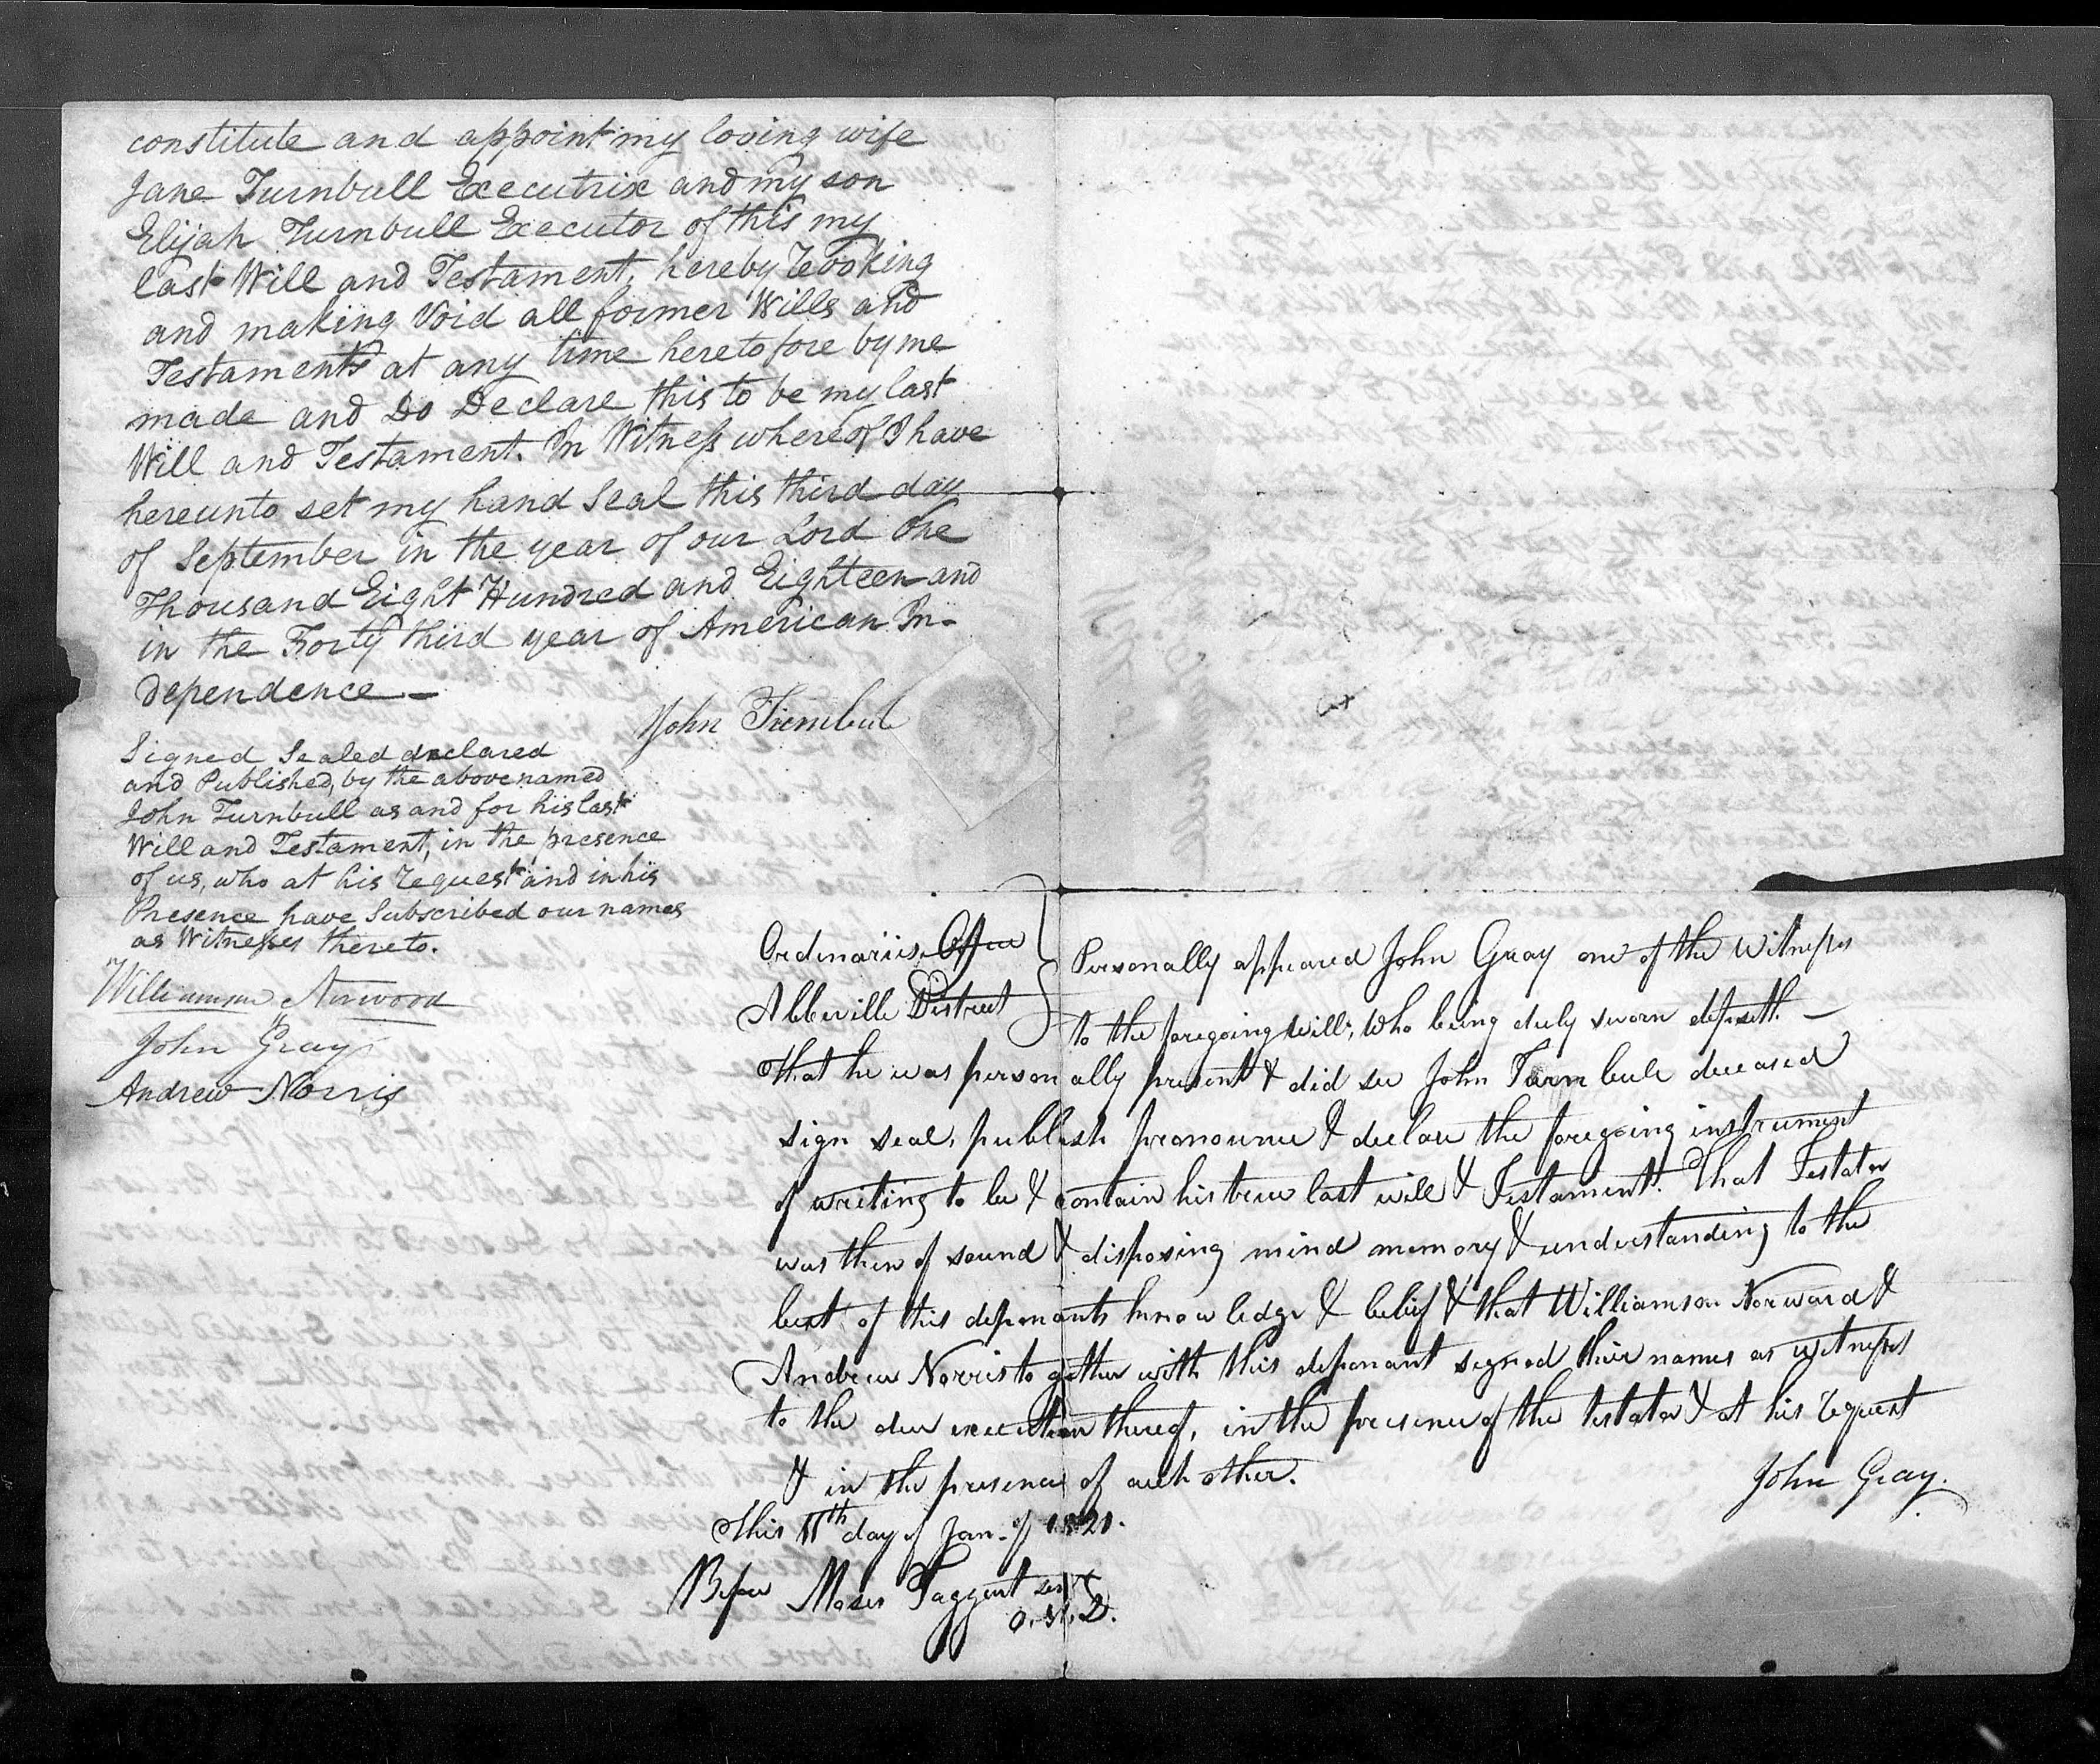 constitute and appoint my loving wife
Jane Turnbull Executrix and my son
Elijah Turnbull Executor of this my
last Will and Testament, hereby revoking
and making Void all former Wills and
Testaments at any time heretofore by me
made and Do Declare this to be my last
Will and Testament. In Witness whereof I have
hereunto set my hand Seal this third day
of September in the year of our Lord One
Thousand Eight Hundred and Eighteen and
in the Forty third year of American In-
dependence —
John Turnbull
Signed Sealed declared
and Published, by the above named
John Turnbull as and for his last
Will and Testament, in the presence
of us, who at his request and in his
Presence have Subscribed our names
as Witnesses thereto.
Williamson Norwood
John Gray
Andrew Norris
Ordinariis Office
Abbeville District
Personally appeared John Gray one of the witnesses
to the foregoing will, who being duly sworn deposeth —
That he was personally present & did see John Turnbull deceased
sign seal, publish pronounce & declare the foregoing instrument
of writing to be & contain his true last will & Testament. That Testator
was then of sound & disposing mind memory & understanding to the
best of this deponants knowledge & belief & that Williamson Norward &
Andrew Norris together with this deponant signed their names as witnesses
to the due execution thereof, in the presence of the testator & at his request
& in the presence of each other.
John Gray.
This 11th day of Jan. of 1821.
Before Moses Taggart senr
O. A. D.